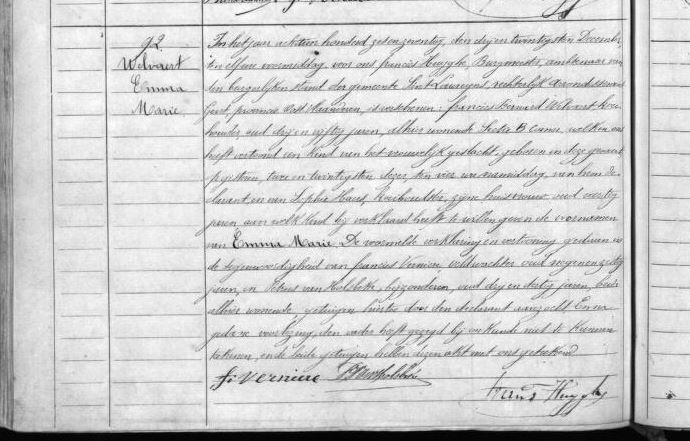 92
Welvaert
Emma
Marie.
In het jaar achttien honderd zesenzeventig, den dry en twintigsten December
ten elf ure voormiddag, voor ons francies Huyghe Burgmeester, ambtenaar van
den burgelyken stand der gemeente Sint Laureyns, rechterlyk arrondissement
Gent, provincie Oost Vlaanderen, is verschenen: francies Bernard Welvaert
houder oud dry en vyftig jaren, alhier wonende Sectie B welken ons
heeft vertoond een kind van het vrouwelyk geslacht, geboren in deze gemeente
gisteren, twee en twintigsten dezer, ten vier ure namiddag, van hem de-
clarant en van Sophia zyne huisvrouw, oud veertig
jaren, aan welk kind hy verklaard heeft te willen geven de voornamen
van Emma Marie. De voormelde verklaring en vertooning gedaan in
de tegenwoordigheid van francies Verniere, veldwachter oud negenenzestig
jaren, en Petrus van Holsbeke, byzonderen, oud dry en dertig jaren, beide
alhier wonende, getuigen hiertoe door den declarant aanzocht. En na
gedane voorlezing, den vader heeft gezegd by oorkonde niet te kunnen
teekenen, en de beide getuigen hebben dezen akt met ons geteekend
f: Verniere P Van Holsbeke
frans Huyghe